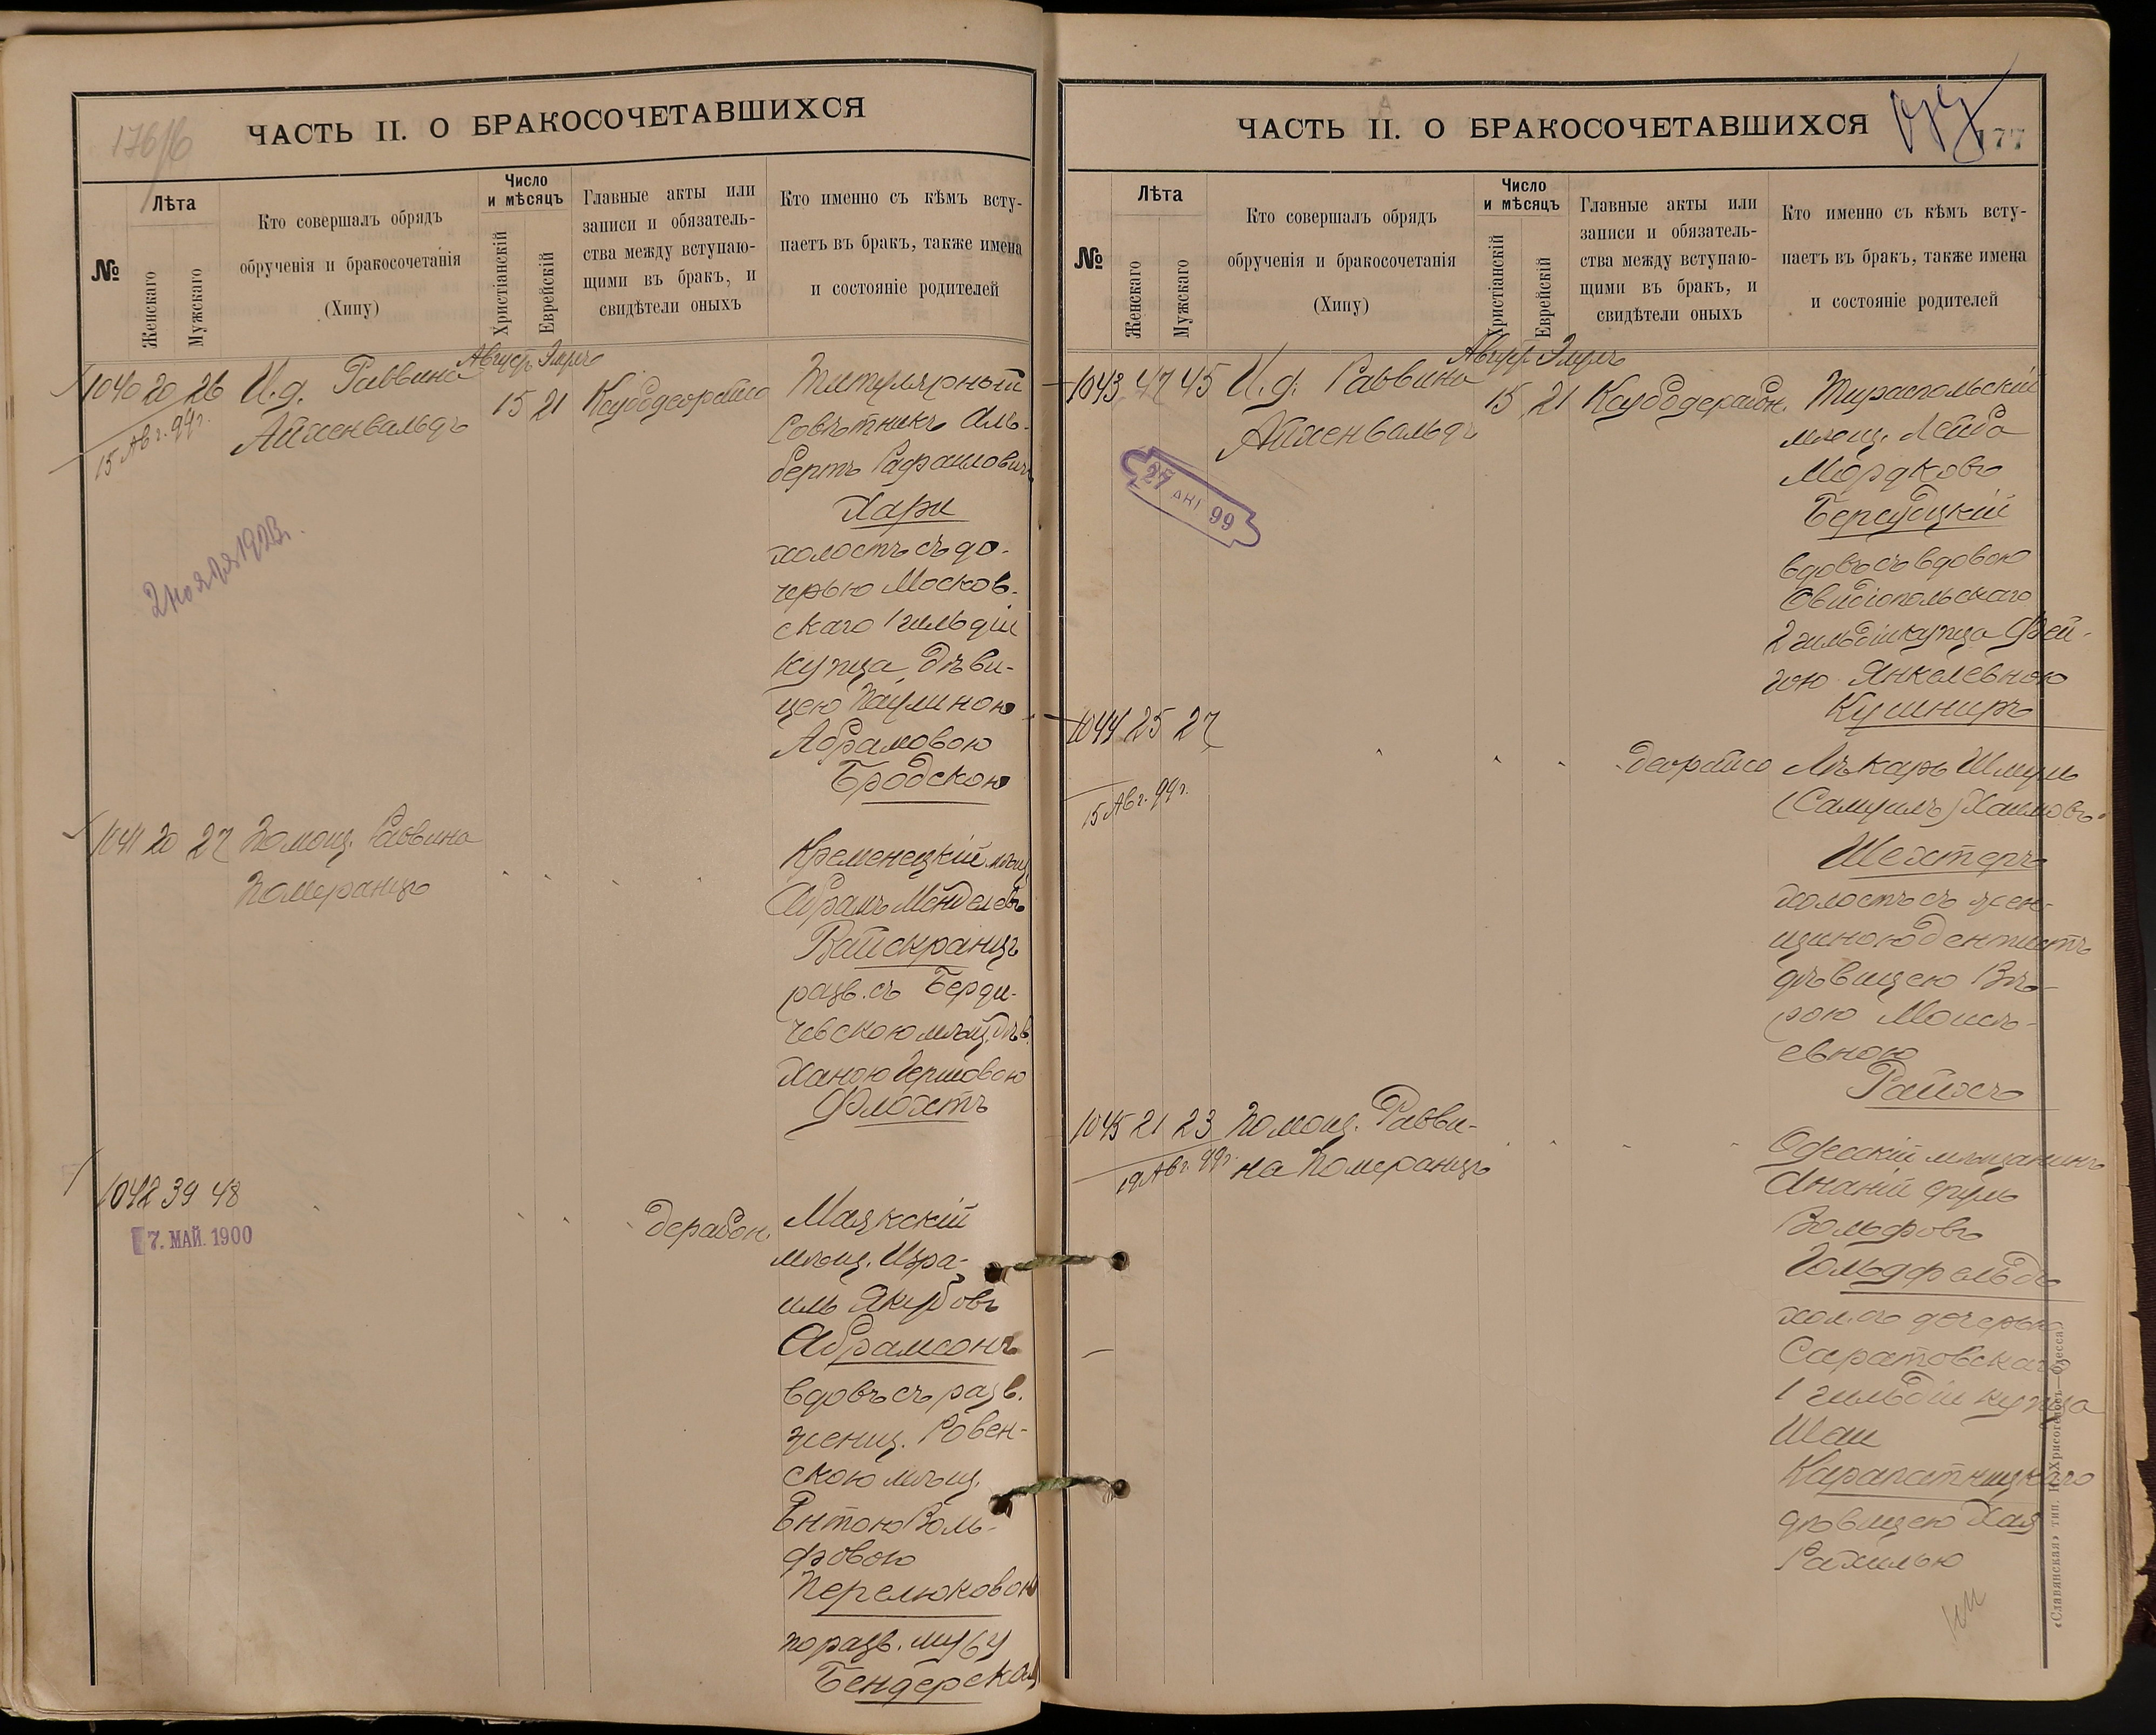 176/б
ЧАСТЬ II. О БРАКОСОЧЕТАВШИХСЯ
№
Лѣта
Женскаго
Мужскаго
Кто совершалъ обрядъ
обрученія и бракосочетанія
(Хипу)
Число
и мѣсяцъ
Христіанскій
Еврейскій
Главные акты или
записи и обязатель-
ства между вступаю-
щими въ бракъ, и
свидѣтели оныхъ
Кто именно съ кѣмъ всту-
паетъ въ бракъ, также имена
и состояніе родителей
1040 20 26 И.д. Раввина
Айхенвальдъ
15 Авг. 99г.
15 21
Титулярный
Совѣтникъ Аль-
бертъ Рафаиловичъ
Хари
холостъ съ до-
черью Москов-
скаго 1 гильдіи
купца дѣви-
цею Паулиною
Абрамовою
Бродскою
2 ноября 1923г.
1041 20 27 Помощ. Раввина
Померанцъ
Кременецкій мѣщ.
Абрамъ Менделевъ
Вайскранцъ
разв. съ Берди-
чевскою мѣщ. дѣв.
Ханою Гершовою
Флохтъ
1042 39 48
7. МАЙ. 1900
дерабон.
Маякскій
мѣщ. Изра-
иль Якубовъ
Абрамсонъ
вдовъ съ разв.
женщ. Ровен-
скою мѣщ.
Ентою Воль-
фовою
Перелюковою
по разв. мужу
Бендерская
ЧАСТЬ II. О БРАКОСОЧЕТАВШИХСЯ
177
№
Лѣта
Женскаго
Мужскаго
Кто совершалъ обрядъ
обрученія и бракосочетанія
(Хипу)
Число
и мѣсяцъ
Христіанскій
Еврейскій
Главные акты или
записи и обязатель-
ства между вступаю-
щими въ бракъ, и
свидѣтели оныхъ
Кто именно съ кѣмъ всту-
паетъ въ бракъ, также имена
и состояніе родителей
1043 47 45 И.д. Раввина
Айхенвальдъ
15 21
27 99
Тираспольскій
мѣщ. Лейба
Мордковъ
Берсудцкій
вдовъ съ вдовою
Овидіопольскаго
2 гильдіи купца Фей-
гою Янкелевною
Кушниръ
1044 25 27
15 Авг. 99г.
деорайсо
Лѣкарь Шмуль
(Самуилъ) Хаимовъ
Шехтеръ
холостъ съ жен-
щиною дентистъ
дѣвицею Вѣ-
рою Моисѣ-
евною
Райхъ
1045 21 23 Помощ. Равви-
на Померанцъ
19 Авг. 99г.
Одесскій мѣщанинъ
Ананій
Вольфовъ
Гольдфельдъ
хол. съ дочерью
Саратовскаго
1 гильдіи купца
Шаи
Карапатницкаго
дѣвицею Хая
Рахилью
«Славянская» тип. Н. Хрисогелосъ—Одесса)